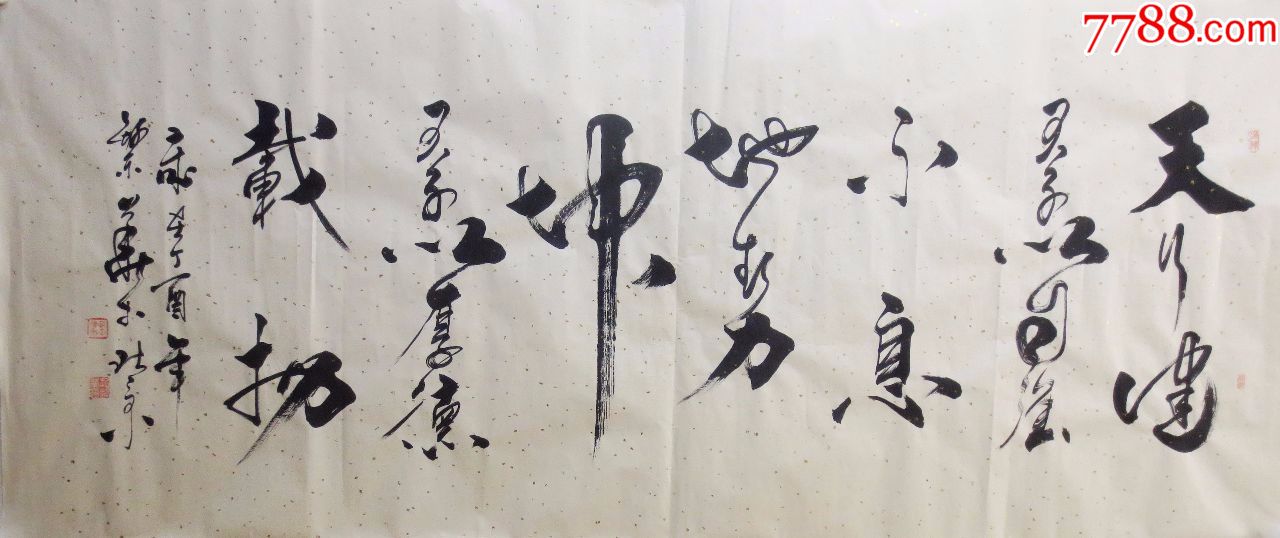 天行健
君子以自强
不息
地势
坤
君子以厚德
载物
岁在丁酉年
华书于北京
7788.com